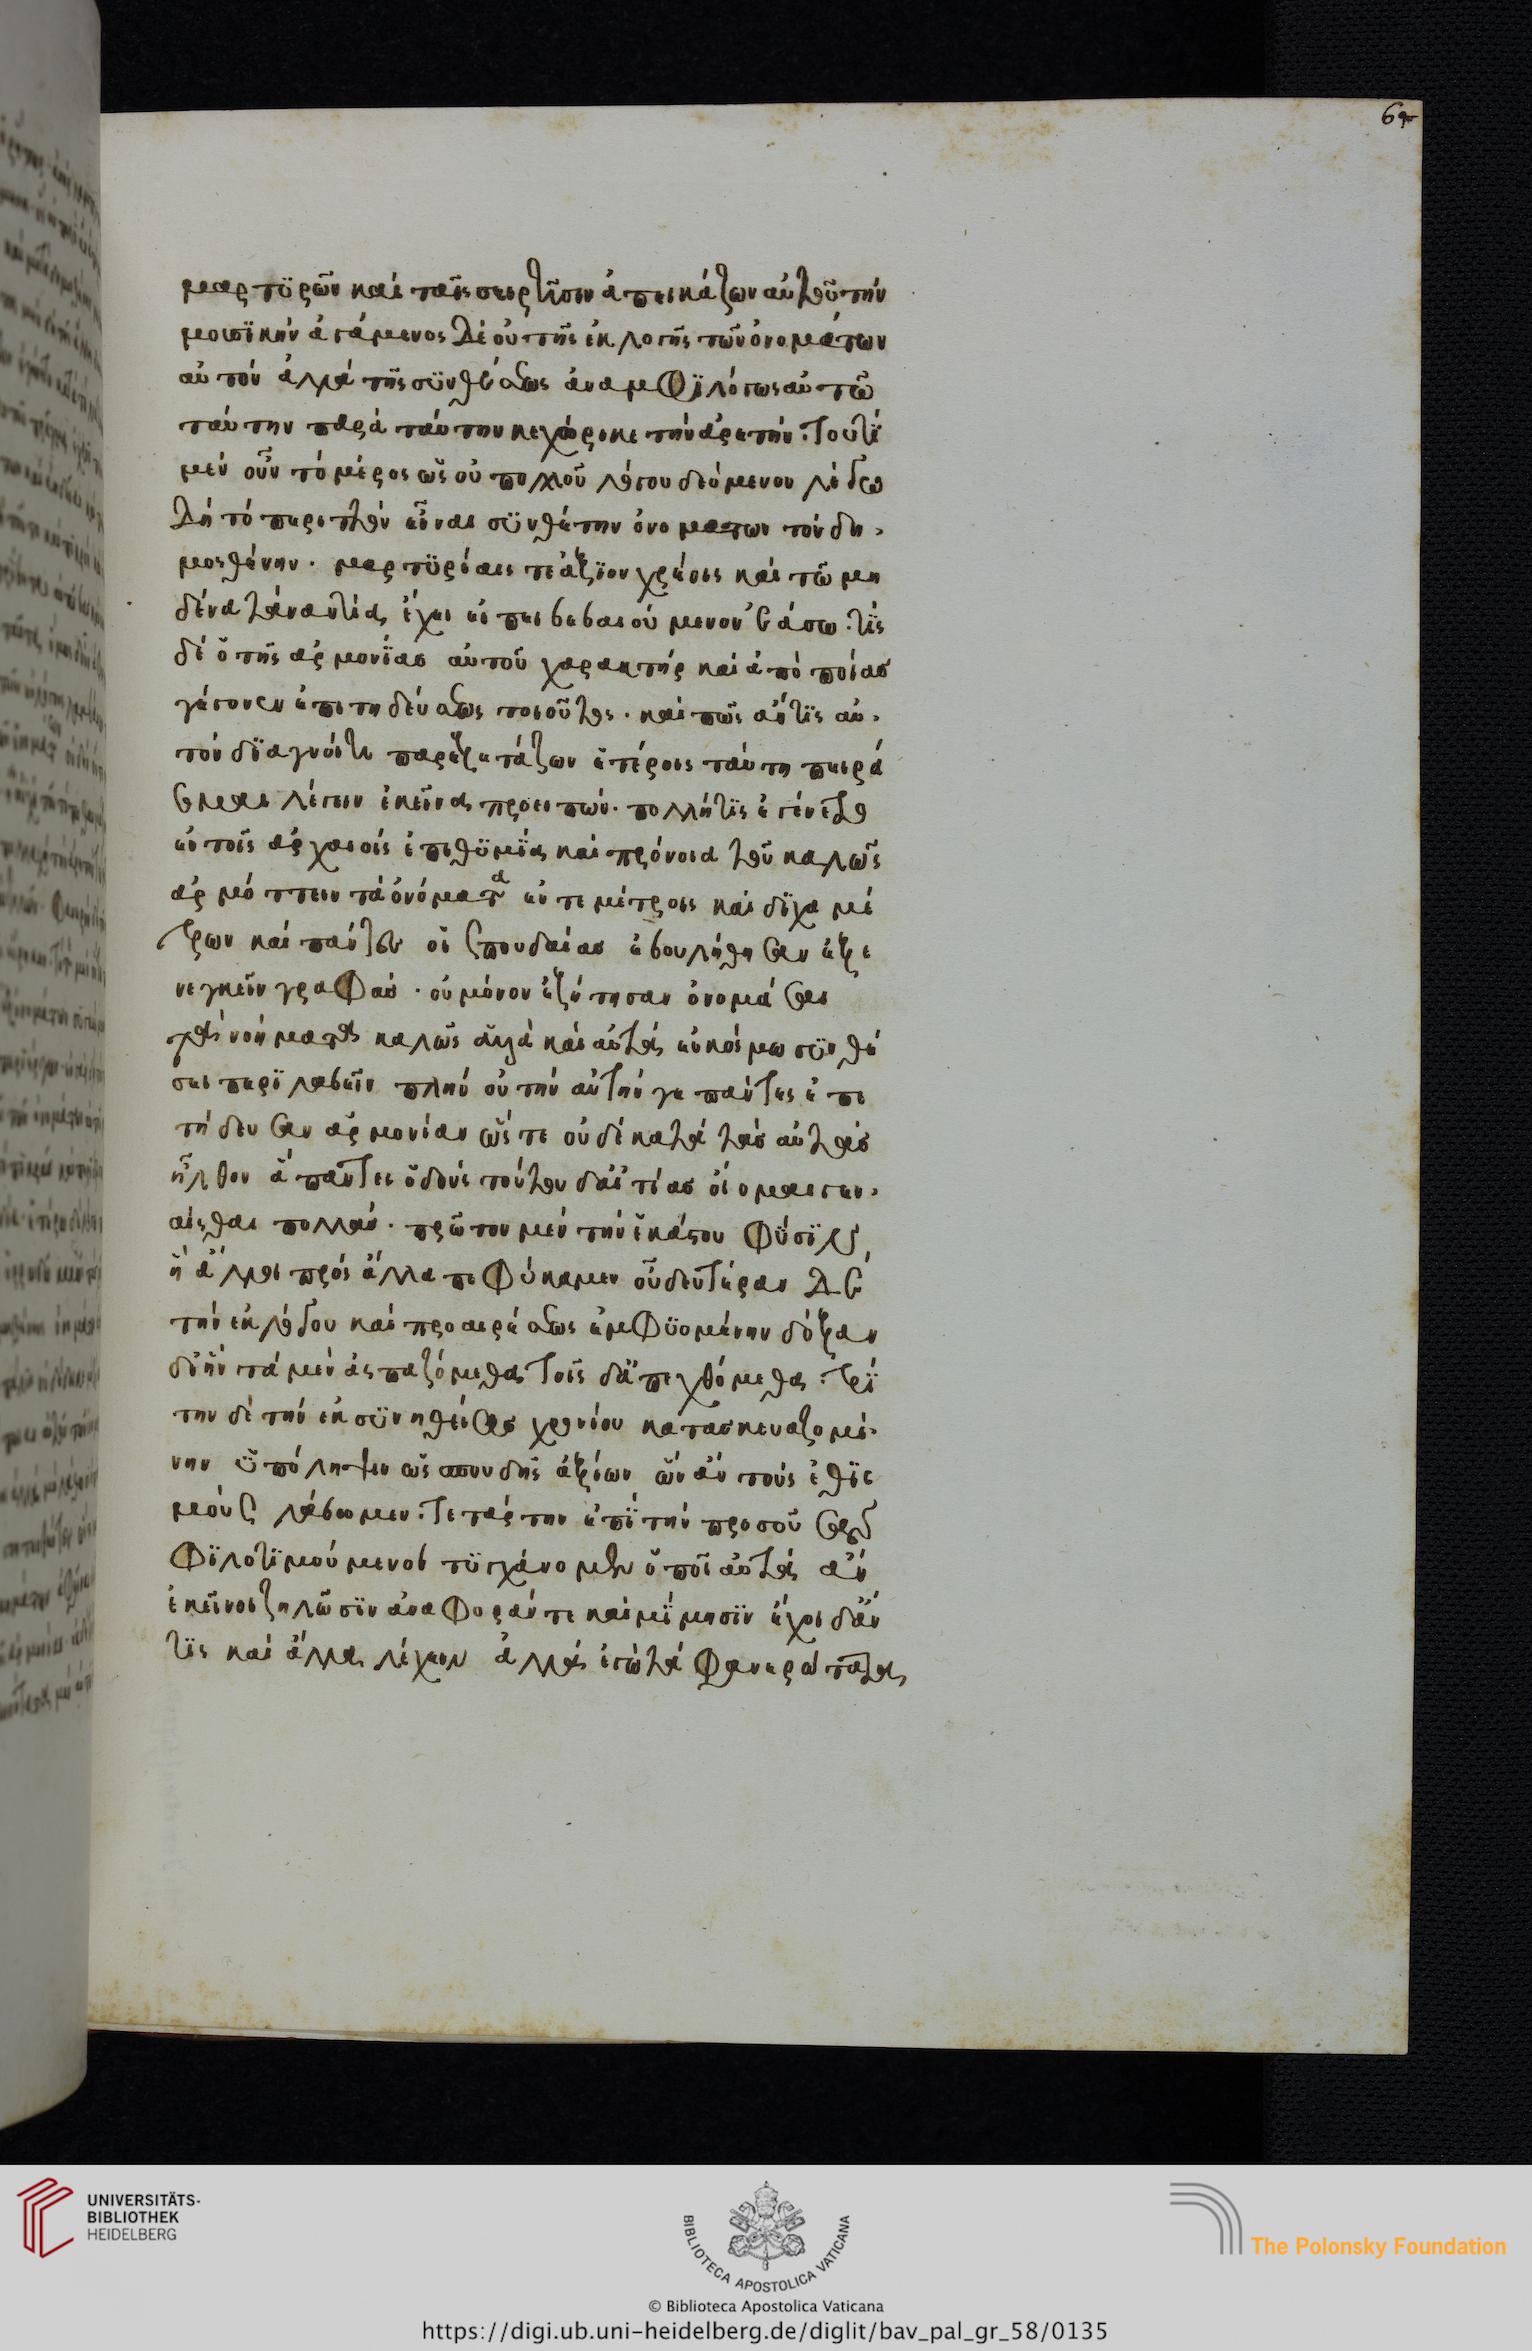 67
μαρτϋρῶν καὶ ταῖς σειρῆσιν ἀπεικάζων αὐτοῦ τὴν
μουσϊκὴν ἀγάμενος δὲ οὐ τῆς ἐκλογῆς τῶν ὀνομάτων
αὐτὸν ἀλλὰ τῆς σϋνθέσεως ἀναμφϊλόγως αὐτῶ
ταύτην παρὰ ταύτην κεχώρηκε τὴν ἀρετήν. τουτὶ
μὲν οὖν τὸ μέρος ὡς οὐ πολλοῦ λόγου δεόμενον
δὴ τὸ περιττὸν εἶναι σϋνθέτην ὀνομάτων τὸν δη
μοσθένην. μαρτϋρίαις τε ἀξϊοχρέοις καὶ τῶ μη
δένα τἀναντία ἔχειν εἰπεῖν βεβαιούμενον ἐάσω. τϊς
δὲ ὁ τῆς ἁρμονΐας αὐτοῦ χαρακτὴρ καὶ ἀπὸ ποίας
γέγονεν ἐπιτηδεύσεως τοιοῦτος. καὶ πῶς ἄν τϊς αὐ
τὸν δϊαγνοίη παρεξετάζων ἑτέροις ταύτη πειρά
σομαι λέγειν ἐκεῖνα προειπών. πολλή τϊς ἐγένετο
ἐν τοῖς ἀρχαίοις ἐπιθϋμΐα καὶ πρόνοια τοῦ καλῶς
ἁρμόττειν τὰ ὀνόματα ἔν τε μέτροις καὶ δΐχα μέ
τρων καὶ πάντες οἱ σπουδαίας ἐβουλήθησαν ἐξε
νεγκεῖν γραφὰς. οὐ μόνον ἐζήτησαν ὀνομάσαι
τὰ νοήματα καλῶς ἀλλὰ καὶ αὐτὰ εὐκόσμω σϋνθέ
σει περϊλαβεῖν πλὴν οὐ τὴν αὐτήν γε πάντες ἐπε
τήδευσαν ἁρμονίαν ὥστε οὐδὲ κατὰ τὰς αὐτὰς
ἦλθον ἅπαντες ὁδούς τούτου δ' αἰτίας οἴομαι γεν
έσθαι πολλάς. πρῶτον μὲν τὴν ἑκάστου φϋσϊν
ἧ ἄλλοι πρὸς ἄλλα πεφύκαμεν οὖ δευτέραν δὲ
τὴν ἐκ λόγου καὶ προαιρέσεως ἐμφϋομένην δόξαν
δι' ἣν τὰ μὲν ἀσπαζόμεθα τοῖς δ' ἀπεχθόμεθα. τρϊ
την δὲ τὴν ἐκ σϋνηθείας χρονίου κατασκευαζομέ
νην ὑπόληψιν ὡς σπουδῆς ἀξίων ὧν ἂν τοὺς ἐθϊσ
μοὺς λάβωμεν. τετάρτην ἐπϊ τὴν πρὸς οὓς ἂν
φϊλοτϊμούμενοι τϋγχάνομεν ὁποῖ' αὐτὰ ἂν
ἐκεῖνοι ζηλῶσϊν ἀναφοράν τε καὶ μΐμησϊν ἔχοι δ' ἄν
τϊς καὶ ἄλλα λέγειν ἀλλ' ἐγὼ τὰ φανερώτατα
UNIVERSITÄTS-
BIBLIOTHEK
HEIDELBERG
BIBLIOTECA APOSTOLICA VATICANA
The Polonsky Foundation
© Biblioteca Apostolica Vaticana
https://digi.ub.uni-heidelberg.de/diglit/bav_pal_gr_58/0135